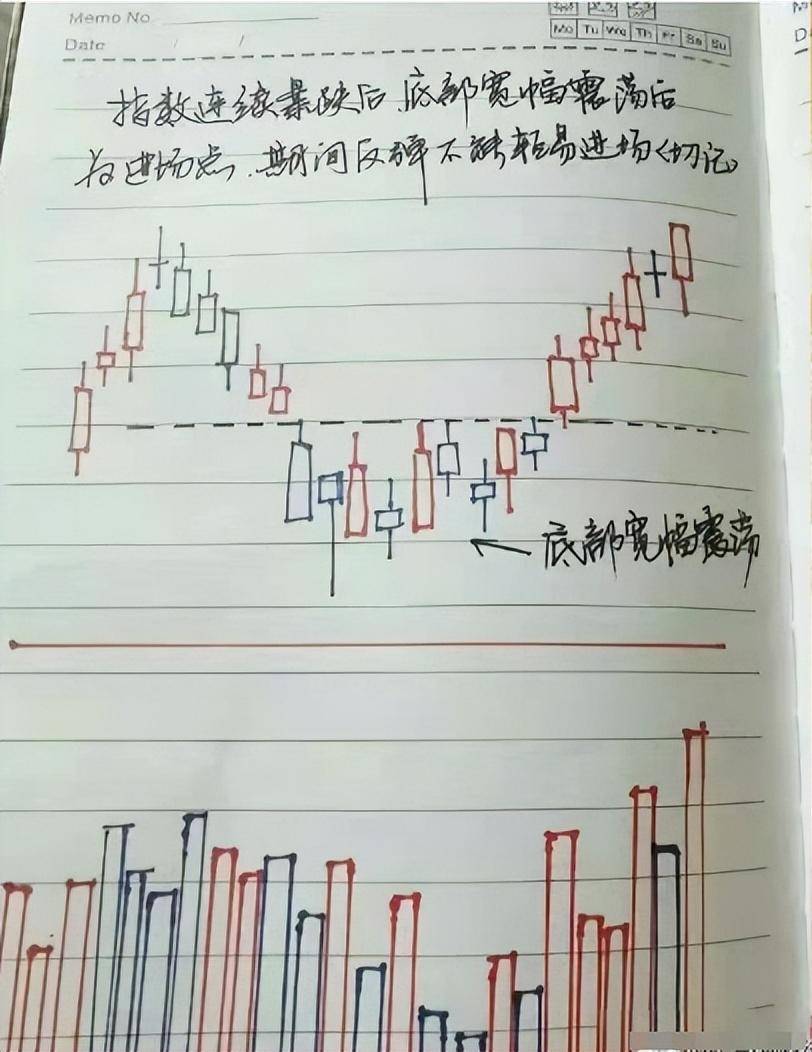 Memo No
Mo Tu We Th Fr Sa Su
Date / /
指数连续暴跌后.底部宽幅震荡后
为进场点.期间反弹不能轻易进场《切记》
底部宽幅震荡